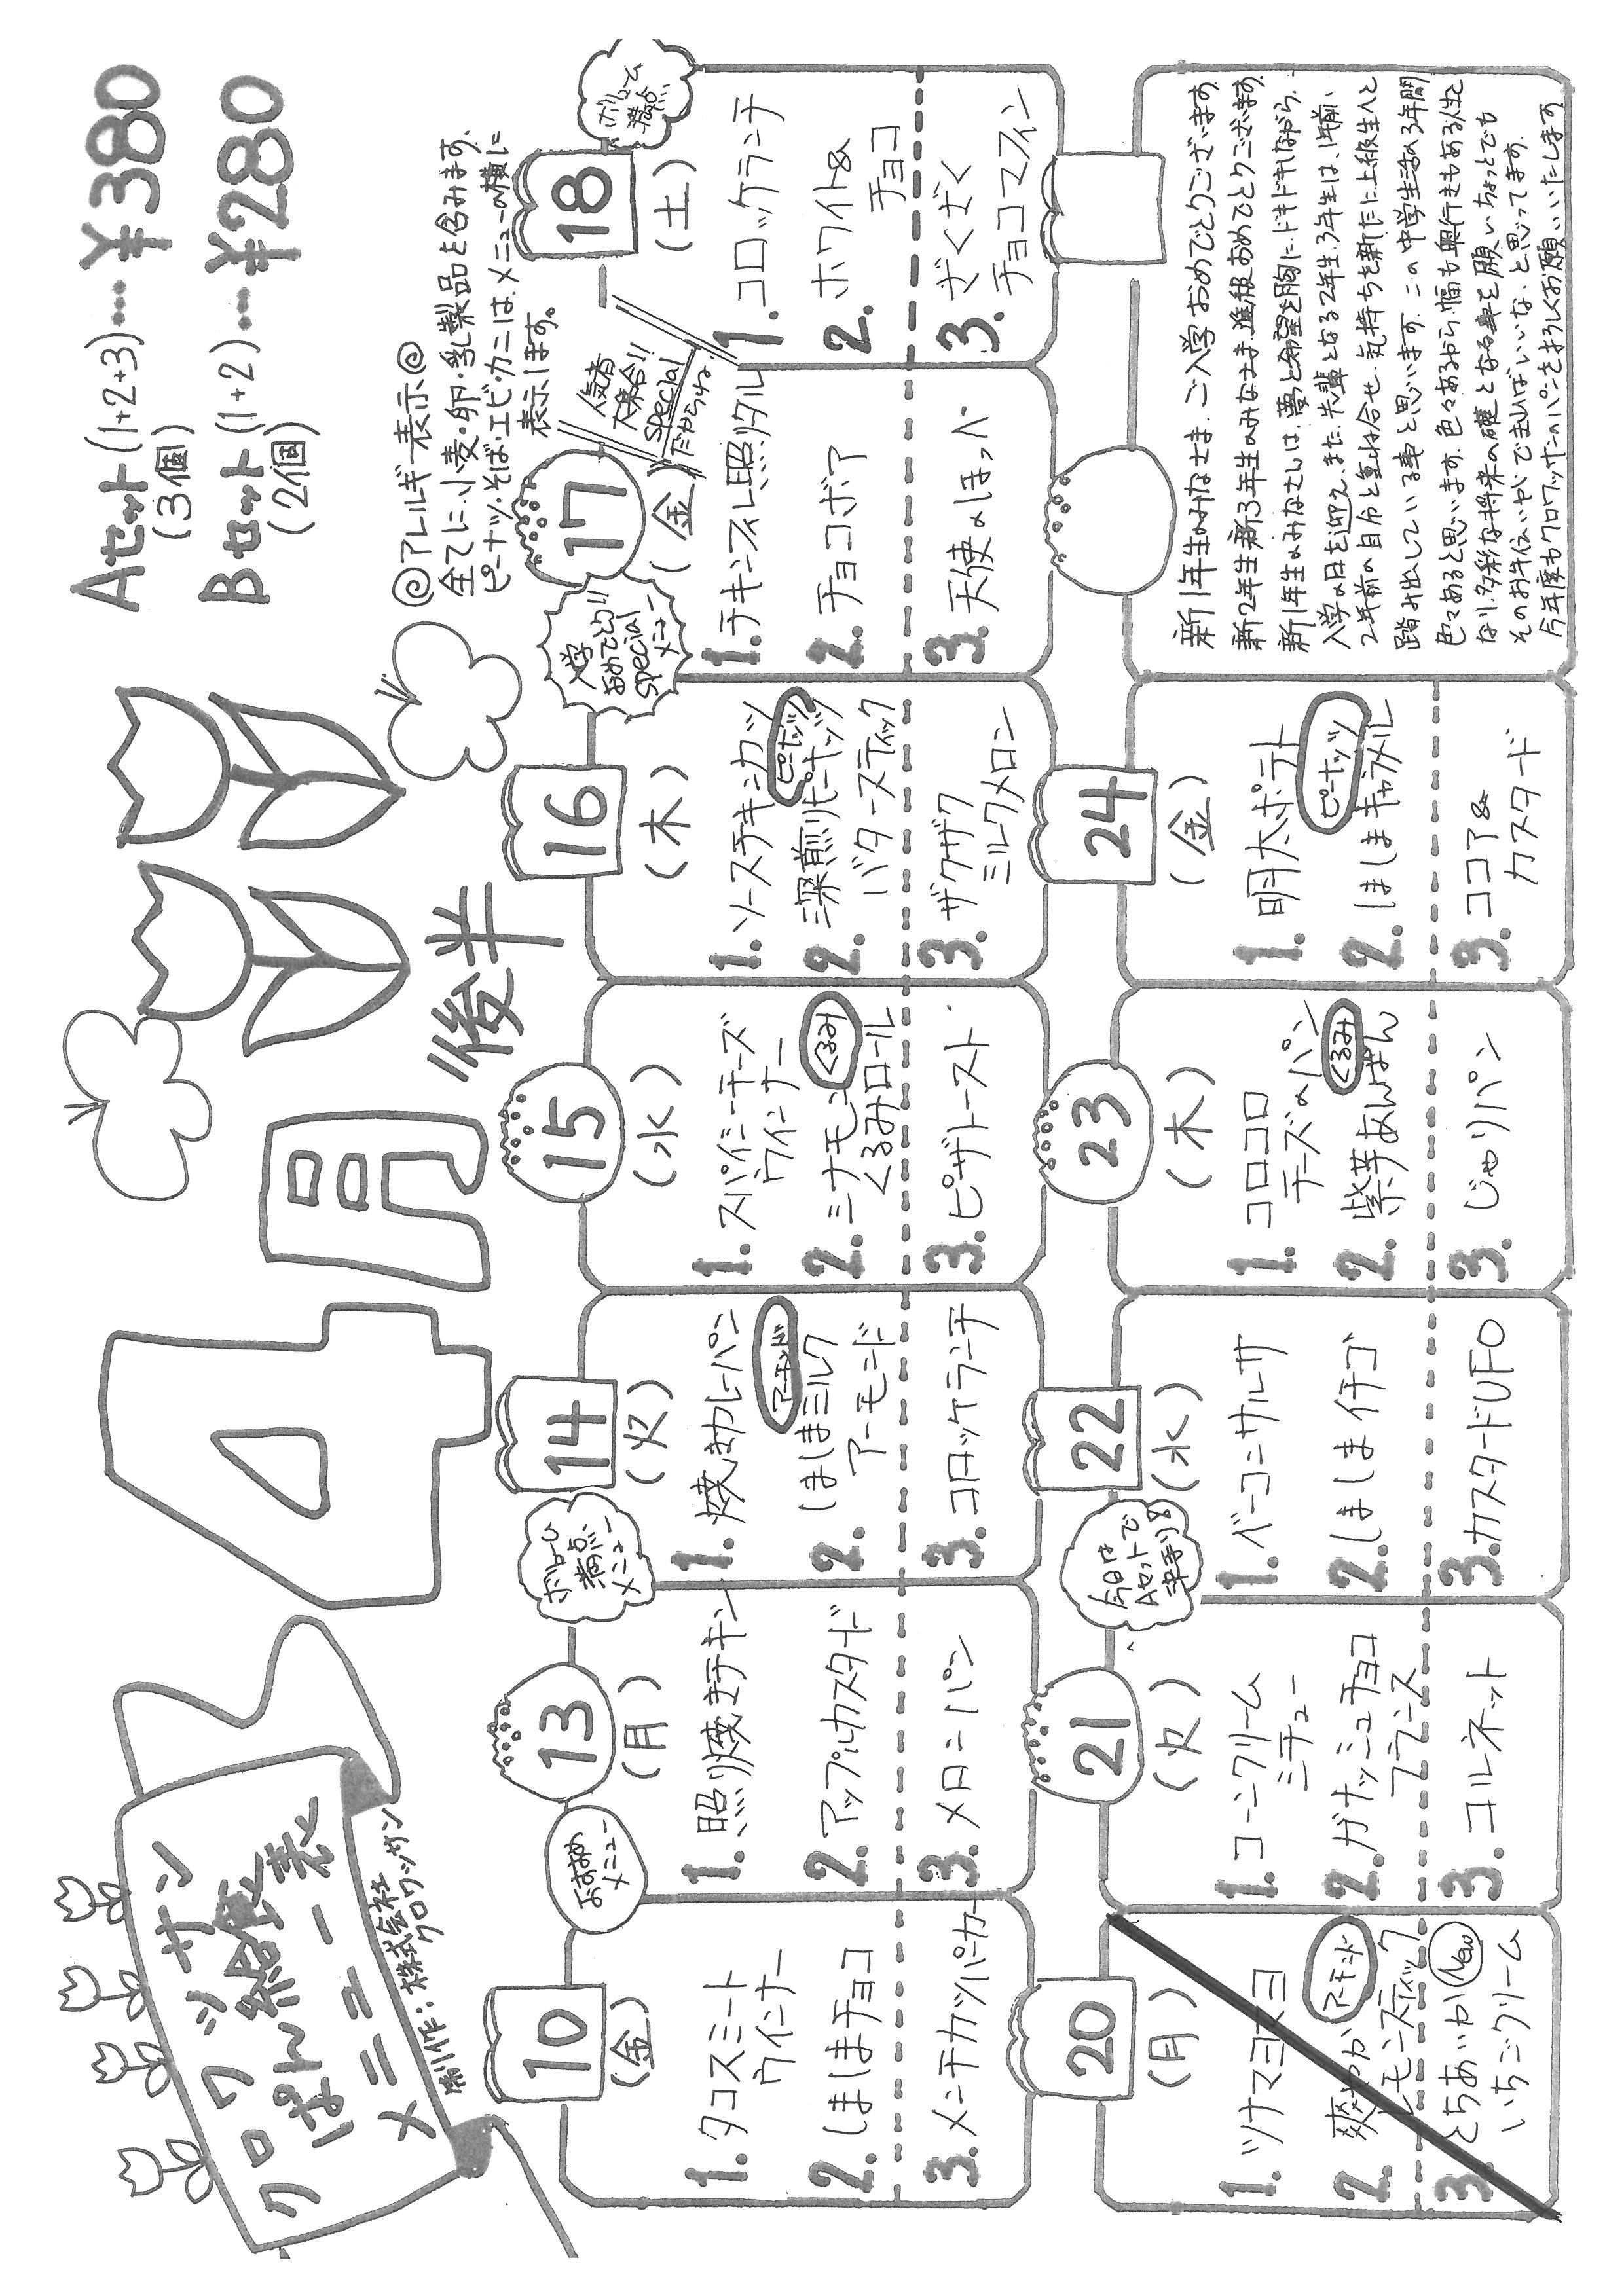 クロワッサン
ぱん給食
メニュー表
制作：株式会社
クロワッサン
4月
後半
Aセット(1+2+3)…¥380
(3個)
Bセット(1+2)…¥280
(2個)
◎アレルギー表示◎
全てに、小麦・卵・乳製品を含みます。
ピーナッツ・そば・エビ・カニは、メニューの横に
表示します。
10
(金)
1. タコスミート
ウインナー
2. しましまチョコ
3. メンチカツバーガー
おすすめ
メニュー
13
(月)
1. 照り焼きチキン
2. アップルカスタード
3. メロンパン
ボリューム
満点
メニュー
14
(火)
1. 焼きカレーパン
アーモンド
2. しましまミルク
アーモンド
3. コロッケランチ
15
(水)
1. スパイシーチーズ
ウインナー
くるみ
2. シナモン
くるみロール
3. ピザトースト
16
(木)
1. ソースチキンカツ
ピーナッツ
2. 深煎りピーナッツ
バタースティック
3. ザクザク
ミルクメロン
入学
おめでとう!!
special
メニュー
17
(金)
1. チキンフィレ照りタル
2. チョコボア
3. 天使のほっぺ
人気者
大集合!!
special
だからね
18
(土)
ボリューム
満点
1. コロッケランチ
2. ホワイト&
チョコ
3. ざくざく
チョコマフィン
20
(月)
1. ツナマヨネヨ
アーモンド
2. 爽やか
レモンスティック
New
3. とちあいか
いちごクリーム
21
(火)
1. コーンクリーム
シチュー
2. ガナッシュチョコ
フランス
3. コルネット
今日は
Aセットで
22
(水)
1. ベーコンサルサ
2. しましまイチゴ
3. カスタードUFO
23
(木)
1. コロコロ
チーズのパン
くるみ
2. 紫芋あんぱん
3. じゃりパン
24
(金)
1. 明太ポテト
ピーナッツ
2. しましまキャラメル
3. ココア&
カスタード
新1年生のみなさま、ご入学おめでとうございます。
新2年生新3年生のみなさま、進級おめでとうございます。
新1年生のみなさんは、夢と希望を胸にドキドキしながら、
入学の日を迎え、また、先輩となる2年生、3年生は、1年前、
2年前の自分と重ね合せ、気持ちを新たに上級生へと
踏み出している事と思います。この中学生活の3年間
色々あると思います。色々あるから、幅も奥行きもある人生と
なり、多彩な将来の礎となる事を願い、ちょっとでも
そのお手伝いができればいいな、と思ってます。
今年度もクロワッサンのパンをよろしくお願いいたします